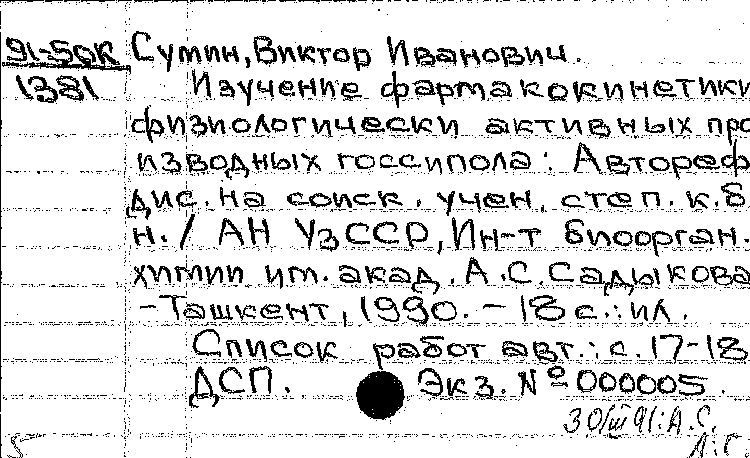 91-50К Сумин, Виктор Иванович.
1381 Изучение фармакокинетики
физиологически активных про
изводных госсипола: Автореф
дис. на соиск. учен. степ. к.б
н./ АН УзССР, Ин-т биоорган.
химии им. акад. А.С. Садыкова
-Ташкент, 1990. - 18 с.: ил.
Список работ авт.: с. 17-18
ДСП. Экз. № 000005.
30/III 91: А.С.
Л.С.
5